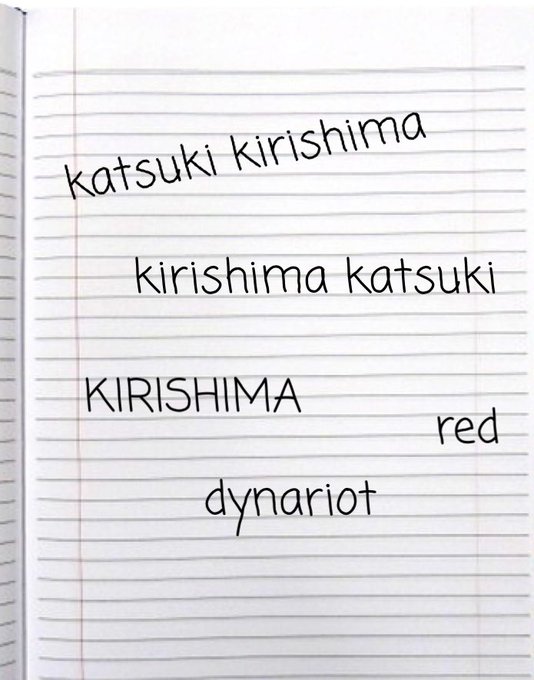 katsuki kirishima
kirishima katsuki
KIRISHIMA
red
dynariot